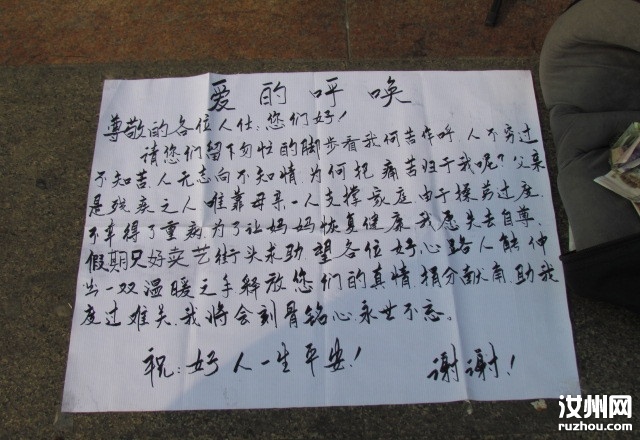 爱的呼唤
尊敬的各位人仕:您们好!
请您们留下匆忙的脚步看我何苦作呼 人不穷过
不知苦.人无志向不知情.为何把痛苦归于我呢?父亲
是残疾之人 唯靠母亲一人支撑家庭.由于操劳过度.
不幸得了重病.为了让妈妈恢复健康.我愿失去自尊
假期只好卖艺街头求助 望各位好心路人能伸
出一双温暖之手释放您们的真情.捐分献角.助我
度过难关.我将会刻骨铭心.永世不忘。
祝:好人一生平安! 谢谢!
汝州网
ruzhou.com